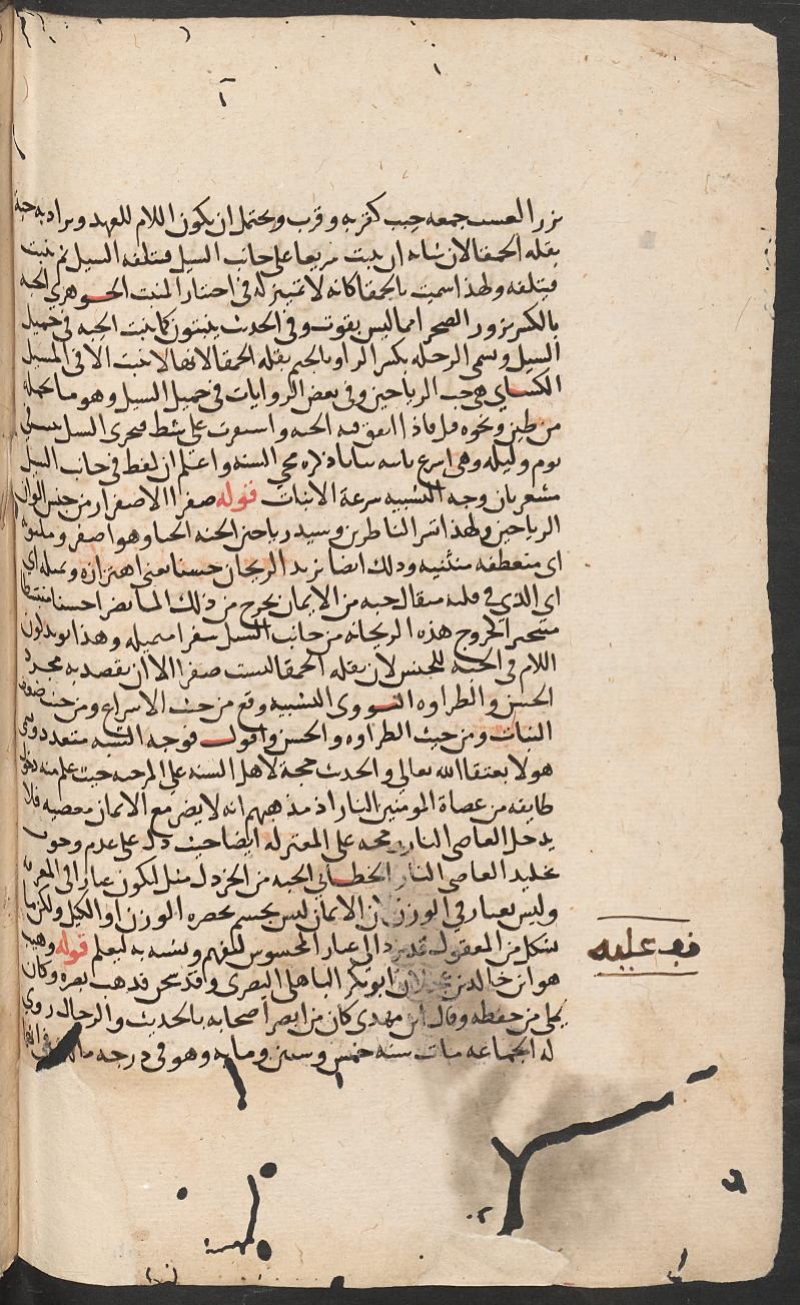 بزر العشب جمعه حبب كقربه وقرب ويحتمل ان يكون اللام للعهد ويراد به حبة
بقله الحمقا لان شانه ان ينبت سريعا على جانب السيل فيتلفه السيل ثم ينبت
فيتلفه ولهذا سميت بالحمقا كانه لا تمييز له في اختيار المنبت الجوهري الحبه
بالكسر بزور الصحرا مما ليس بقوت وفي الحديث ينبتون كما ينبت الحبه في حميل
السيل وسمي الرجله بكسر الرا وبالجيم بقله الحمقا لانها لا تنبت الا في المسيل
الكساي هي حب الرياحين وفي بعض الروايات في حميل السيل وهو ما يحمله
من طين ونحوه قيل فاذا اتفق فيه الحبه واستقرت على شط مجرى السيل تنبت في
يوم وليله وهي اسرع نابته نباتا ذكره محي السنه واعلم ان لفظ في جانب السيل
مشعر بان وجه التشبيه سرعة الانبات قوله صفرا الاصفرار من جنس الوان
الرياحين ولهذا تسر الناظرين وسيد رياحين الجنه الحنا وهو اصفر وملتويه
اي متعطفه منثنيه وذلك ايضا يزيد الريحان حسنا يعني اهتزازه وتميله اي
اي الذي في قلبه مثقال حبه من الايمان يخرج من ذلك الما نضرا حسنا منبسطا
متبخترا كخروج هذه الريحانه من جانب السيل صفرا متميله وهذا يويد كون
اللام في الحبه للجنس لان بقله الحمقا ليست صفرا الا ان يقصد به مجرد
الحسن والطراوه النووي التشبيه وقع من حيث الاسراع ومن حيث ضعف
النبات ومن حيث الطراوه والحسن واقول فوجه الشبه متعدد وسمي
هولا بعتقا الله تعالى والحديث حجة لاهل السنه على المرجيه حيث علم منه دخول
طايفه من عصاة المومنين النار اذ مذهبهم انه لا يضر مع الايمان معصيه فلا
يدخل العاصي النار وحجه على المعتزله ايضا حيث دل على عدم وجوب
تخليد العاصي النار الخطابي الحبه من الخردل مثل ليكون عيارا في المعرفه
وليس بعيار في الوزن لان الايمان ليس بجسم يحصره الوزن او الكيل ولكن ما
يشكل من المعقول قد يرد الى عيار المحسوس ليفهم ويشبه به ليعلم قوله وهيب
هو ابن خالد بن عجلان ابو بكر الباهلي البصري وقد سجن فذهب بصره وكان
يملي من حفظه وقال ابن مهدي كان من ابصر اصحابه بالحديث والرجال روى
له الجماعه مات سنه خمس وستين ومايه وهو في درجه مالك